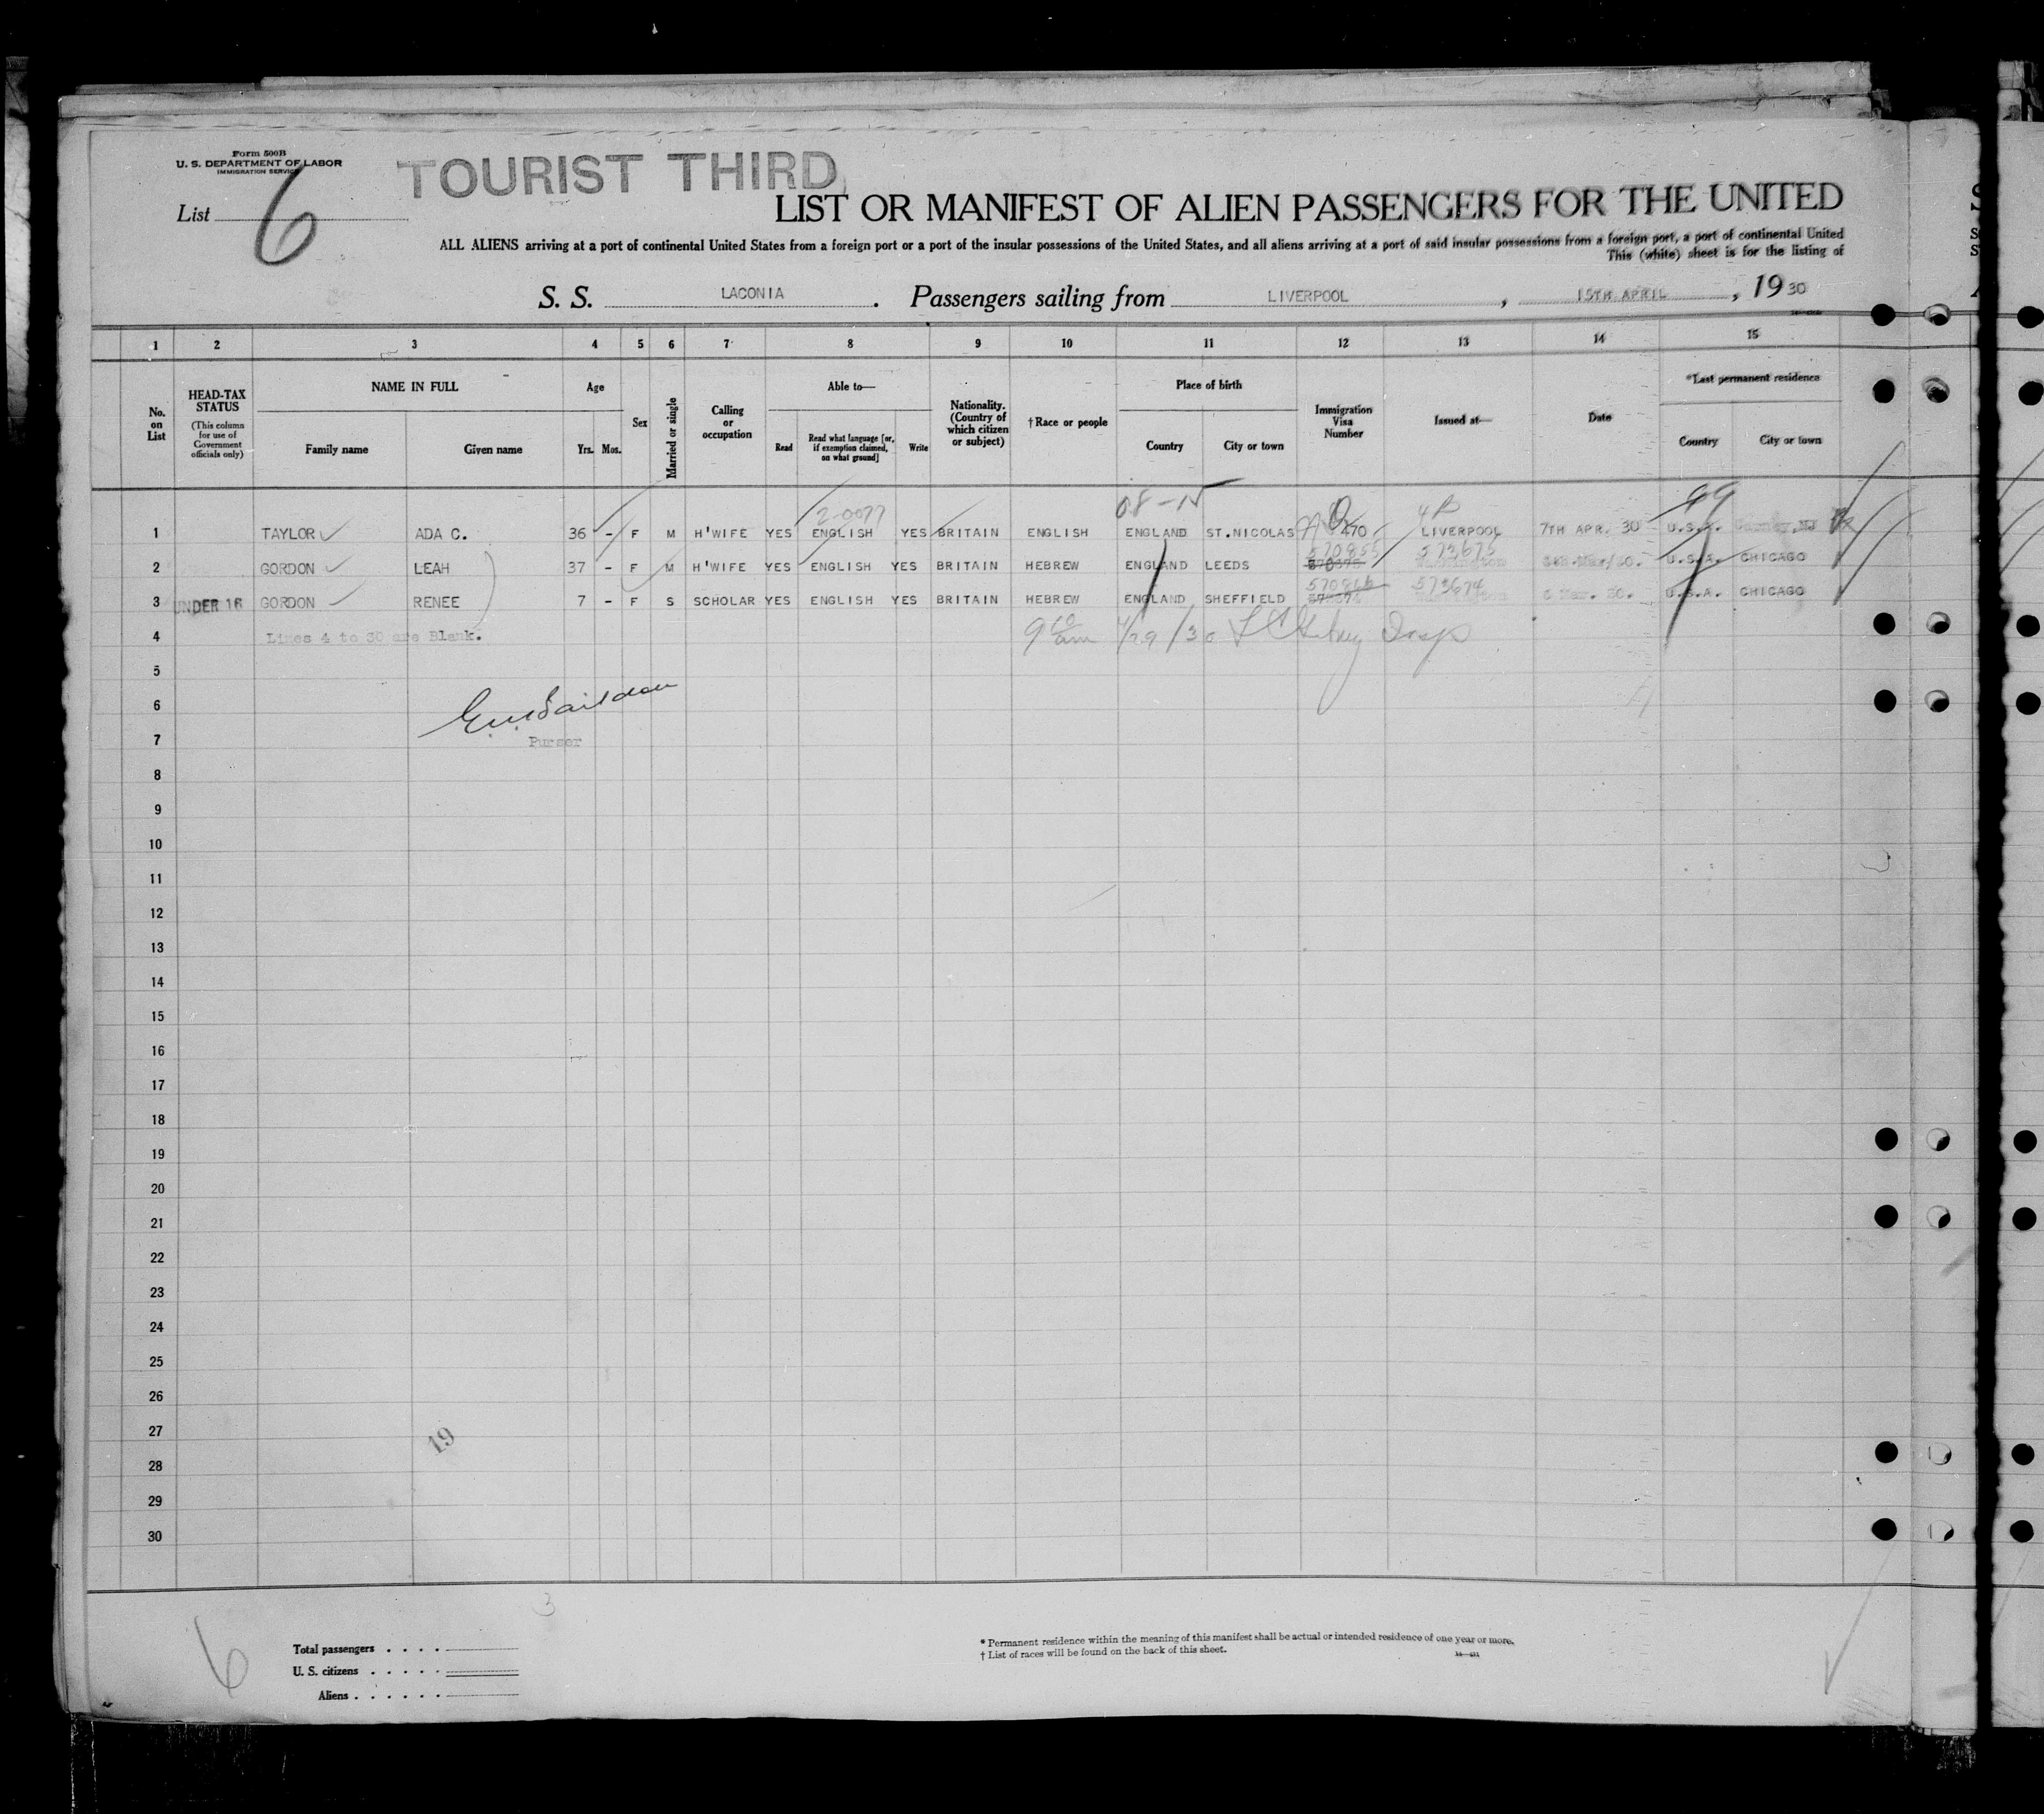 Form 500B
U. S. DEPARTMENT OF LABOR
IMMIGRATION SERVICE
TOURIST THIRD
List 6
LIST OR MANIFEST OF ALIEN PASSENGERS FOR THE UNITED
ALL ALIENS arriving at a port of continental United States from a foreign port or a port of the insular possessions of the United States, and all aliens arriving at a port of said insular possessions from a foreign port, a port of continental United
This (white) sheet is for the listing of
S. S. LACONIA. Passengers sailing from LIVERPOOL, 15TH APRIL, 1930
1 2 3 4 5 6 7 8 9 10 11 12 13 14 15
No. on List
HEAD-TAX STATUS
(This column for use of Government officials only)
NAME IN FULL
Family name Given name
Age
Yrs. Mos.
Sex
Married or single
Calling or occupation
Able to—
Read Read what language [or, if exemption claimed, on what ground] Write
Nationality. (Country of which citizen or subject)
†Race or people
Place of birth
Country City or town
Immigration Visa Number
Issued at—
Date
*Last permanent residence
Country City or town
08-15 99
2-0077 4P
1 TAYLOR ADA C. 36 - F M H'WIFE YES ENGLISH YES BRITAIN ENGLISH ENGLAND ST.NICOLAS 470 LIVERPOOL 7TH APR. 30 U.S.A.
570855 573675
2 GORDON LEAH 37 - F M H'WIFE YES ENGLISH YES BRITAIN HEBREW ENGLAND LEEDS Washington U.S.A. CHICAGO
570866 573674
3 UNDER 16 GORDON RENEE 7 - F S SCHOLAR YES ENGLISH YES BRITAIN HEBREW ENGLAND SHEFFIELD 6 Mar. 30. U.S.A. CHICAGO
4 Lines 4 to 30 are Blank. 9 10 am 4/29/30 Insp
5
6
7 Purser
8
9
10
11
12
13
14
15
16
17
18
19
20
21
22
23
24
25
26
27
19
28
29
30
3
6
Total passengers . . . .
U. S. citizens . . . . .
Aliens . . . . . .
* Permanent residence within the meaning of this manifest shall be actual or intended residence of one year or more.
† List of races will be found on the back of this sheet.